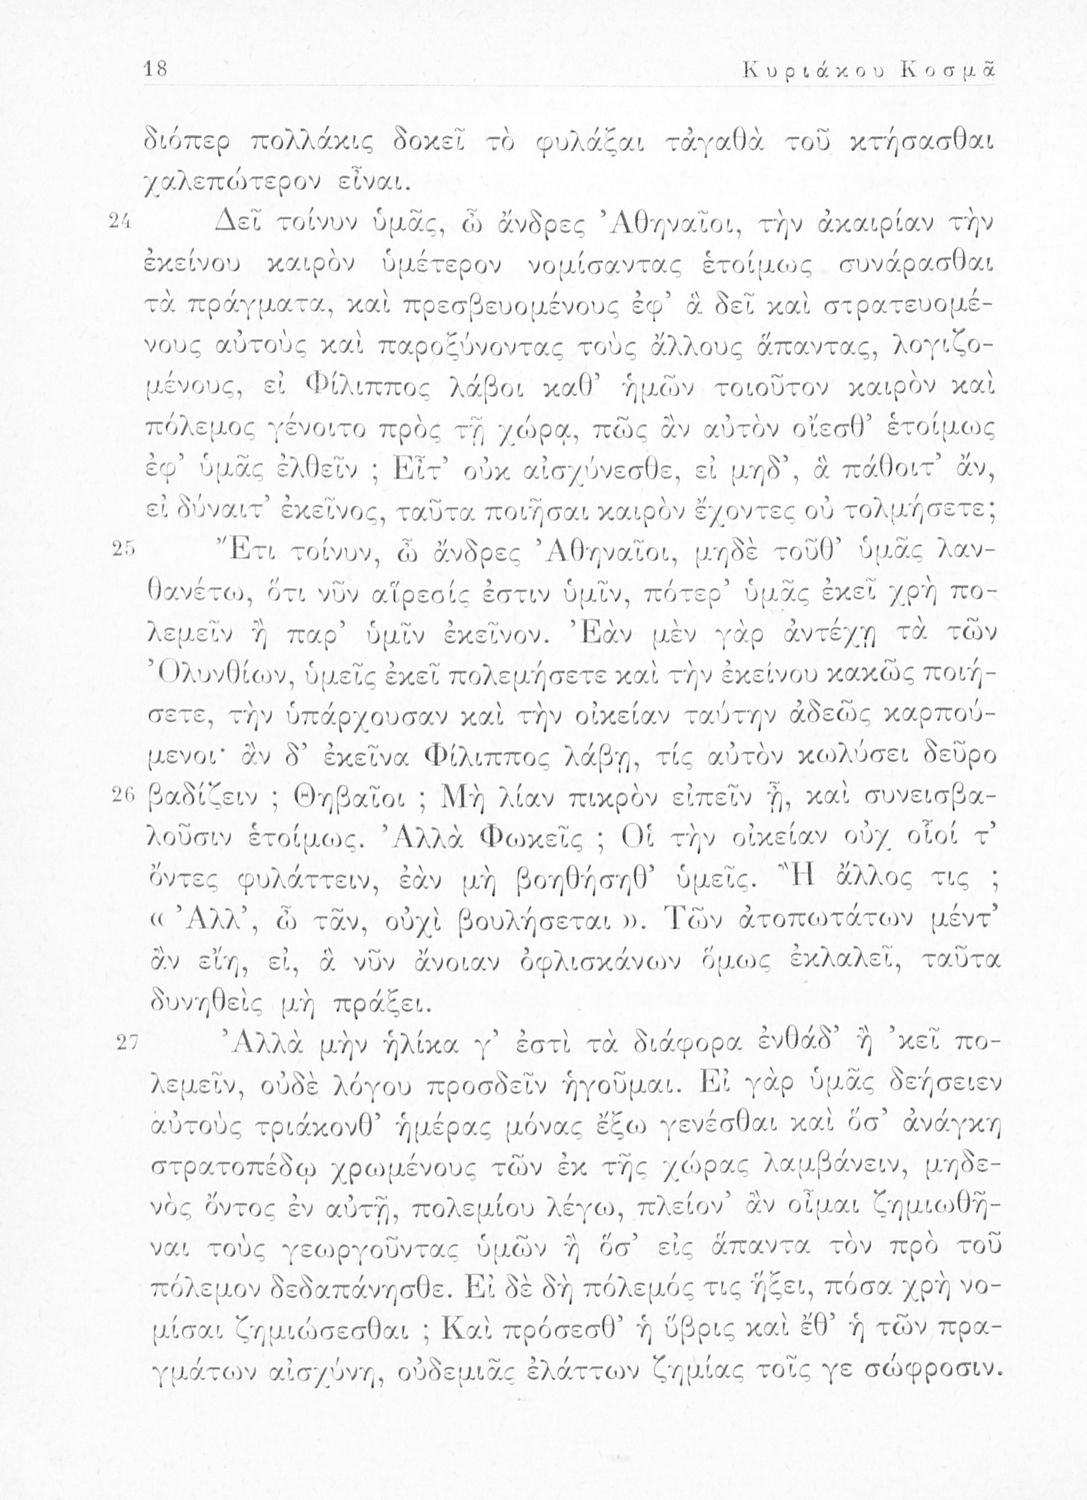 18 Κυριάκου Κοσμᾶ
διόπερ πολλάκις δοκεῖ τὸ φυλάξαι τἀγαθὰ τοῦ κτήσασθαι
χαλεπώτερον εἶναι.
24 Δεῖ τοίνυν ὑμᾶς, ὦ ἄνδρες Ἀθηναῖοι, τὴν ἀκαιρίαν τὴν
ἐκείνου καιρὸν ὑμέτερον νομίσαντας ἑτοίμως συνάρασθαι
τὰ πράγματα, καὶ πρεσβευομένους ἐφ’ ἃ δεῖ καὶ στρατευομέ-
νους αὐτοὺς καὶ παροξύνοντας τοὺς ἄλλους ἅπαντας, λογιζο-
μένους, εἰ Φίλιππος λάβοι καθ’ ἡμῶν τοιοῦτον καιρὸν καὶ
πόλεμος γένοιτο πρὸς τῇ χώρᾳ, πῶς ἂν αὐτὸν οἴεσθ’ ἑτοίμως
ἐφ’ ὑμᾶς ἐλθεῖν ; Εἶτ’ οὐκ αἰσχύνεσθε, εἰ μηδ’, ἃ πάθοιτ’ ἄν,
εἰ δύναιτ’ ἐκεῖνος, ταῦτα ποιῆσαι καιρὸν ἔχοντες οὐ τολμήσετε;
25 Ἔτι τοίνυν, ὦ ἄνδρες Ἀθηναῖοι, μηδὲ τοῦθ’ ὑμᾶς λαν-
θανέτω, ὅτι νῦν αἵρεσίς ἐστιν ὑμῖν, πότερ’ ὑμᾶς ἐκεῖ χρὴ πο-
λεμεῖν ἢ παρ’ ὑμῖν ἐκεῖνον. Ἐὰν μὲν γὰρ ἀντέχῃ τὰ τῶν
Ὀλυνθίων, ὑμεῖς ἐκεῖ πολεμήσετε καὶ τὴν ἐκείνου κακῶς ποιή-
σετε, τὴν ὑπάρχουσαν καὶ τὴν οἰκείαν ταύτην ἀδεῶς καρπού-
μενοι· ἂν δ’ ἐκεῖνα Φίλιππος λάβῃ, τίς αὐτὸν κωλύσει δεῦρο
26 βαδίζειν ; Θηβαῖοι ; Μὴ λίαν πικρὸν εἰπεῖν ᾖ, καὶ συνεισβα-
λοῦσιν ἑτοίμως. Ἀλλὰ Φωκεῖς ; Οἱ τὴν οἰκείαν οὐχ οἷοί τ’
ὄντες φυλάττειν, ἐὰν μὴ βοηθήσηθ’ ὑμεῖς. Ἢ ἄλλος τις ;
« Ἀλλ’, ὦ τᾶν, οὐχὶ βουλήσεται ». Τῶν ἀτοπωτάτων μέντ’
ἂν εἴη, εἰ, ἃ νῦν ἄνοιαν ὀφλισκάνων ὅμως ἐκλαλεῖ, ταῦτα
δυνηθεὶς μὴ πράξει.
27 Ἀλλὰ μὴν ἡλίκα γ’ ἐστὶ τὰ διάφορα ἐνθάδ’ ἢ ’κεῖ πο-
λεμεῖν, οὐδὲ λόγου προσδεῖν ἡγοῦμαι. Εἰ γὰρ ὑμᾶς δεήσειεν
αὐτοὺς τριάκονθ’ ἡμέρας μόνας ἔξω γενέσθαι καὶ ὅσ’ ἀνάγκη
στρατοπέδῳ χρωμένους τῶν ἐκ τῆς χώρας λαμβάνειν, μηδε-
νὸς ὄντος ἐν αὐτῇ, πολεμίου λέγω, πλείον’ ἂν οἶμαι ζημιωθῆ-
ναι τοὺς γεωργοῦντας ὑμῶν ἢ ὅσ’ εἰς ἅπαντα τὸν πρὸ τοῦ
πόλεμον δεδαπάνησθε. Εἰ δὲ δὴ πόλεμός τις ἥξει, πόσα χρὴ νο-
μίσαι ζημιώσεσθαι ; Καὶ πρόσεσθ’ ἡ ὕβρις καὶ ἔθ’ ἡ τῶν πρα-
γμάτων αἰσχύνη, οὐδεμιᾶς ἐλάττων ζημίας τοῖς γε σώφροσιν.